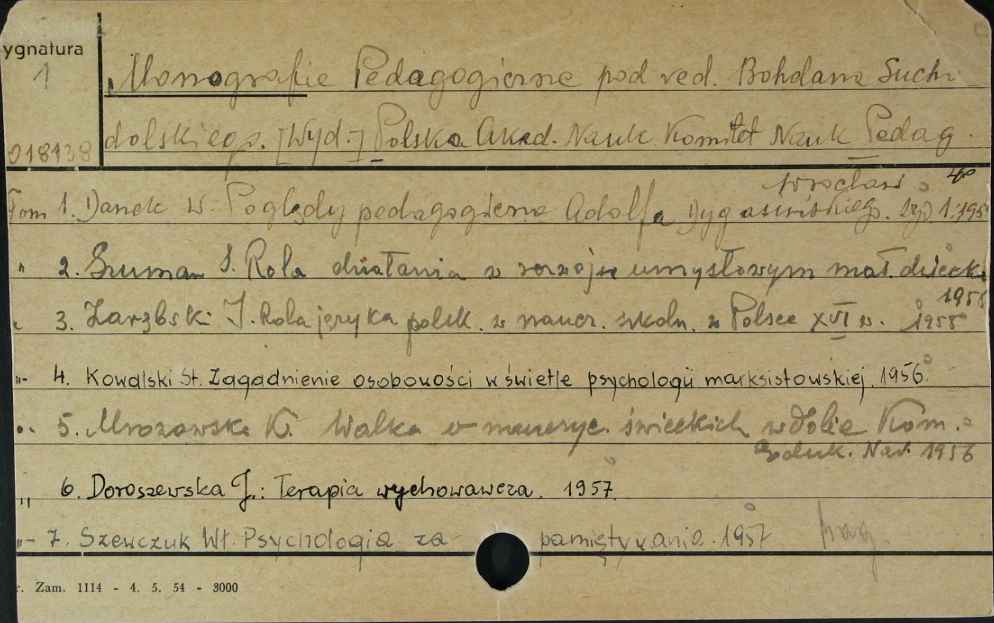 ygnatura
1
Monografie Pedagogiczne pod red. Bohdana Sucho
dolskiego. [Wyd:] Polska Akad. Nauk Komitet Nauk Pedag.
018138
Wrocław 4o
Tom 1. Danek W. Poglądy pedagogiczne Adolfa Dygasińskiego. 1951
" 2. Szuman S. Rola działania w rozwoju umysłowym mał. dziecka
1955
3. Zarębski J. Rola języka polsk. w naucz. szkoln. w Polsce XVI w. 1955
"- 4. Kowalski St. Zagadnienie osobowości w świetle psychologii marksistowskiej. 1956.
5. Mrozowska K. Walka o nauczyc. świeckich w dobie Kom.
Eduk. Nar. 1956
" 6. Doroszewska J.: Terapia wychowawcza. 1957.
"- 7. Szewczuk Wł. Psychologia zapamiętywania. 1957
r. Zam. 1114 - 4. 5. 54 - 3000